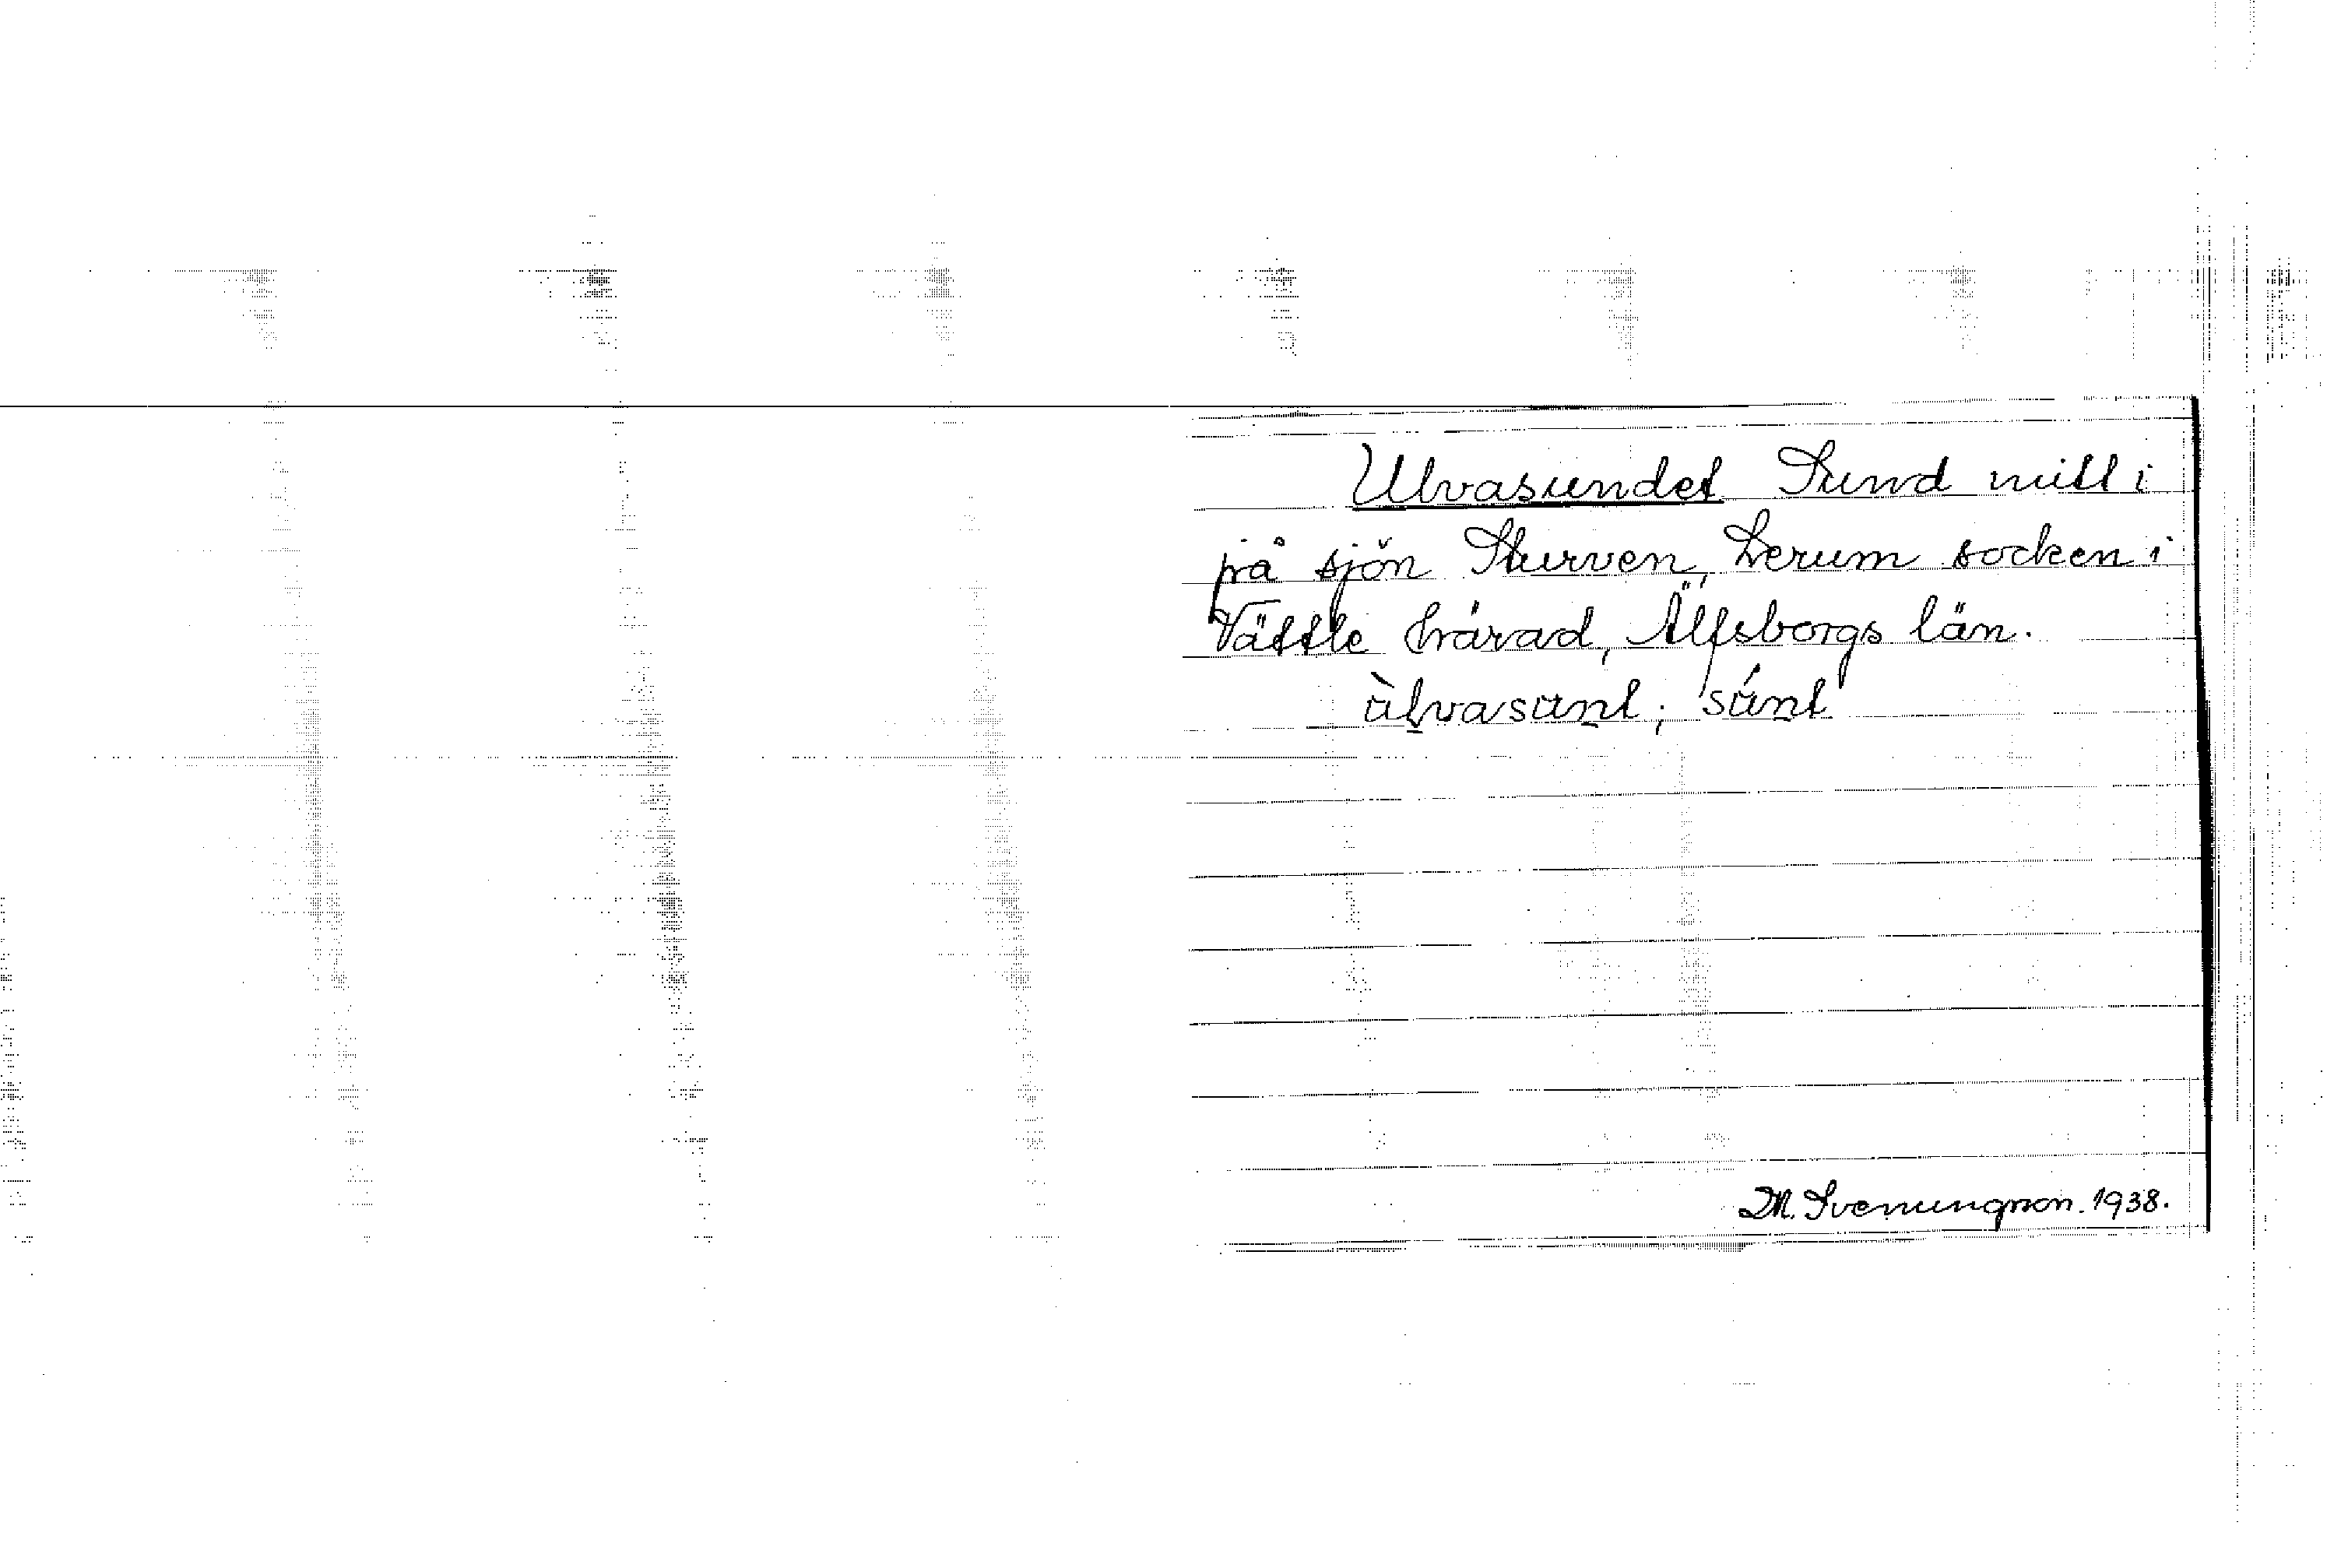 Ulvasundet Sund mitt i
på sjön Sturven, Lerum socken i
Vättle härad, Älfsborgs län.
ùlvasunt; súnt
M. Svenungsson. 1938.